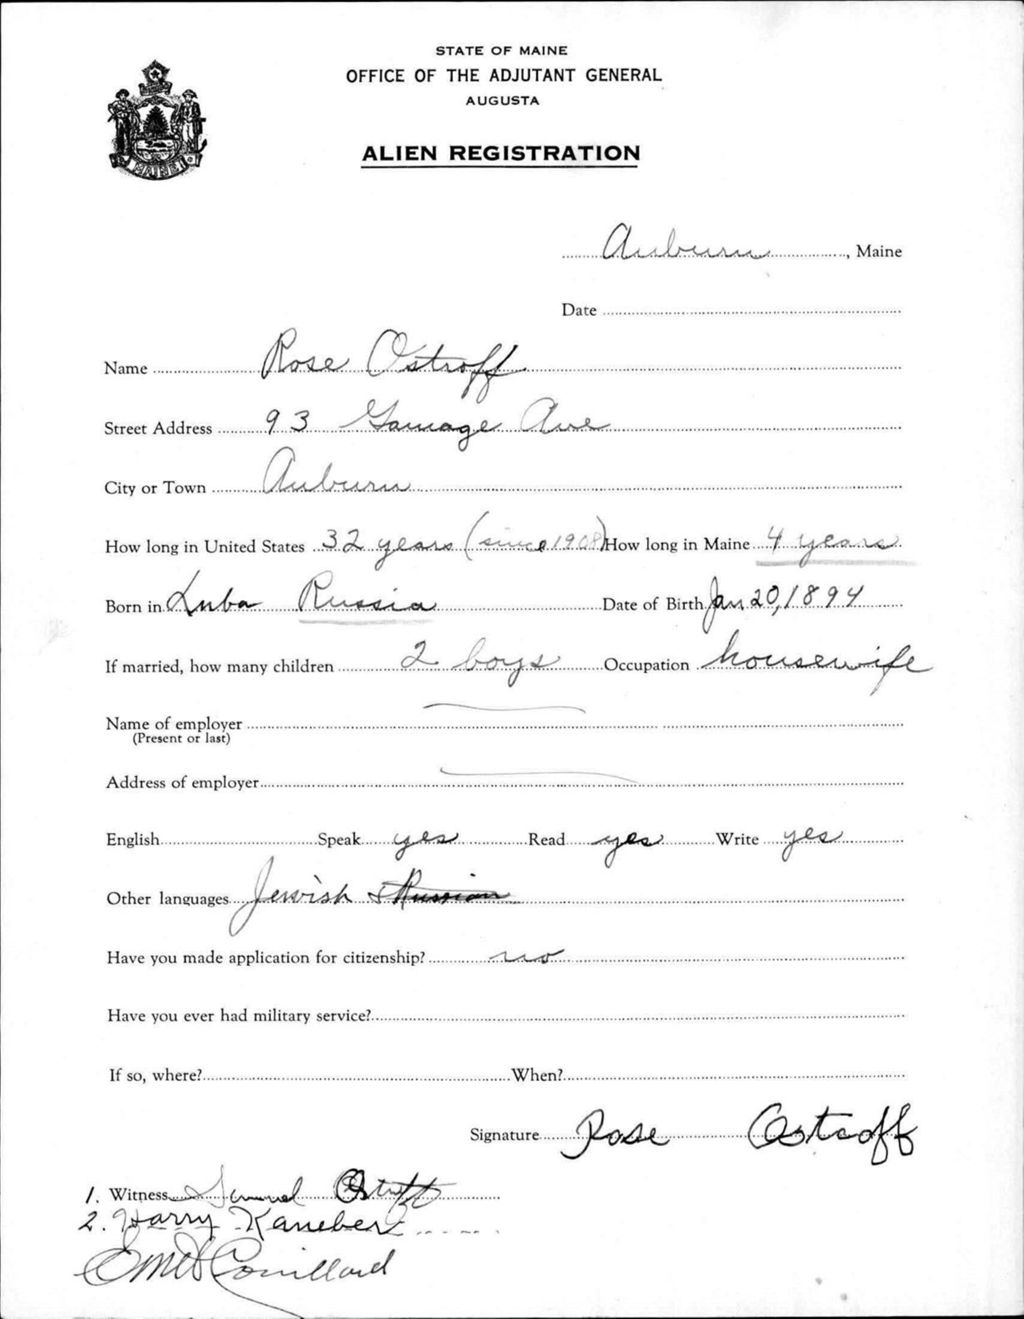 STATE OF MAINE
OFFICE OF THE ADJUTANT GENERAL
AUGUSTA
ALIEN REGISTRATION
MAINE
Auburn, Maine
Date
Name Rose Ostroff
Street Address 93 Gamage Ave
City or Town Auburn
How long in United States 32 years (since 1908) How long in Maine 4 years
Born in Luba Russia Date of Birth Jan 20, 1894
If married, how many children 2 boys Occupation housewife
Name of employer
(Present or last)
Address of employer
English Speak yes Read yes Write yes
Other languages Jewish & Russian
Have you made application for citizenship? no
Have you ever had military service?
If so, where? When?
Signature Rose Ostroff
1. Witness Samuel Ostroff
2. Harry
Couillard